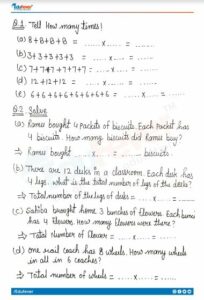 Q.1 Tell How many times!
(a) 8+8+8+8 = ..... x ..... = .....
(b) 3+3+3+3+3 = ..... x ..... = .....
(c) 7+7+7+7+7+7 = ..... x ..... = .....
(d) 12+12+12 = ..... x ..... = .....
(e) 6+6+6+6+6+6+6+6 = ..... x ..... = .....
Q.2 Solve
(a) Ramu bought 4 packets of biscuits. Each packet has
4 biscuits. How many biscuits did Ramu buy?
→ Ramu bought ..... x ..... = ..... biscuits.
(b) There are 12 desks in a classroom. Each desk has
4 legs. what is the total number of legs of the desks?
→ Total number of the legs of desks = ..... x ..... = .....
(c) brought home 3 bunches of flowers. Each bunch
has 4 flowers. How many flowers were there?
→ Total number of flower = ..... x ..... = .....
(d) One coach has 8 wheels. How many wheels
in all in 6 coaches?
→ Total number of wheels = ..... x ..... = .....